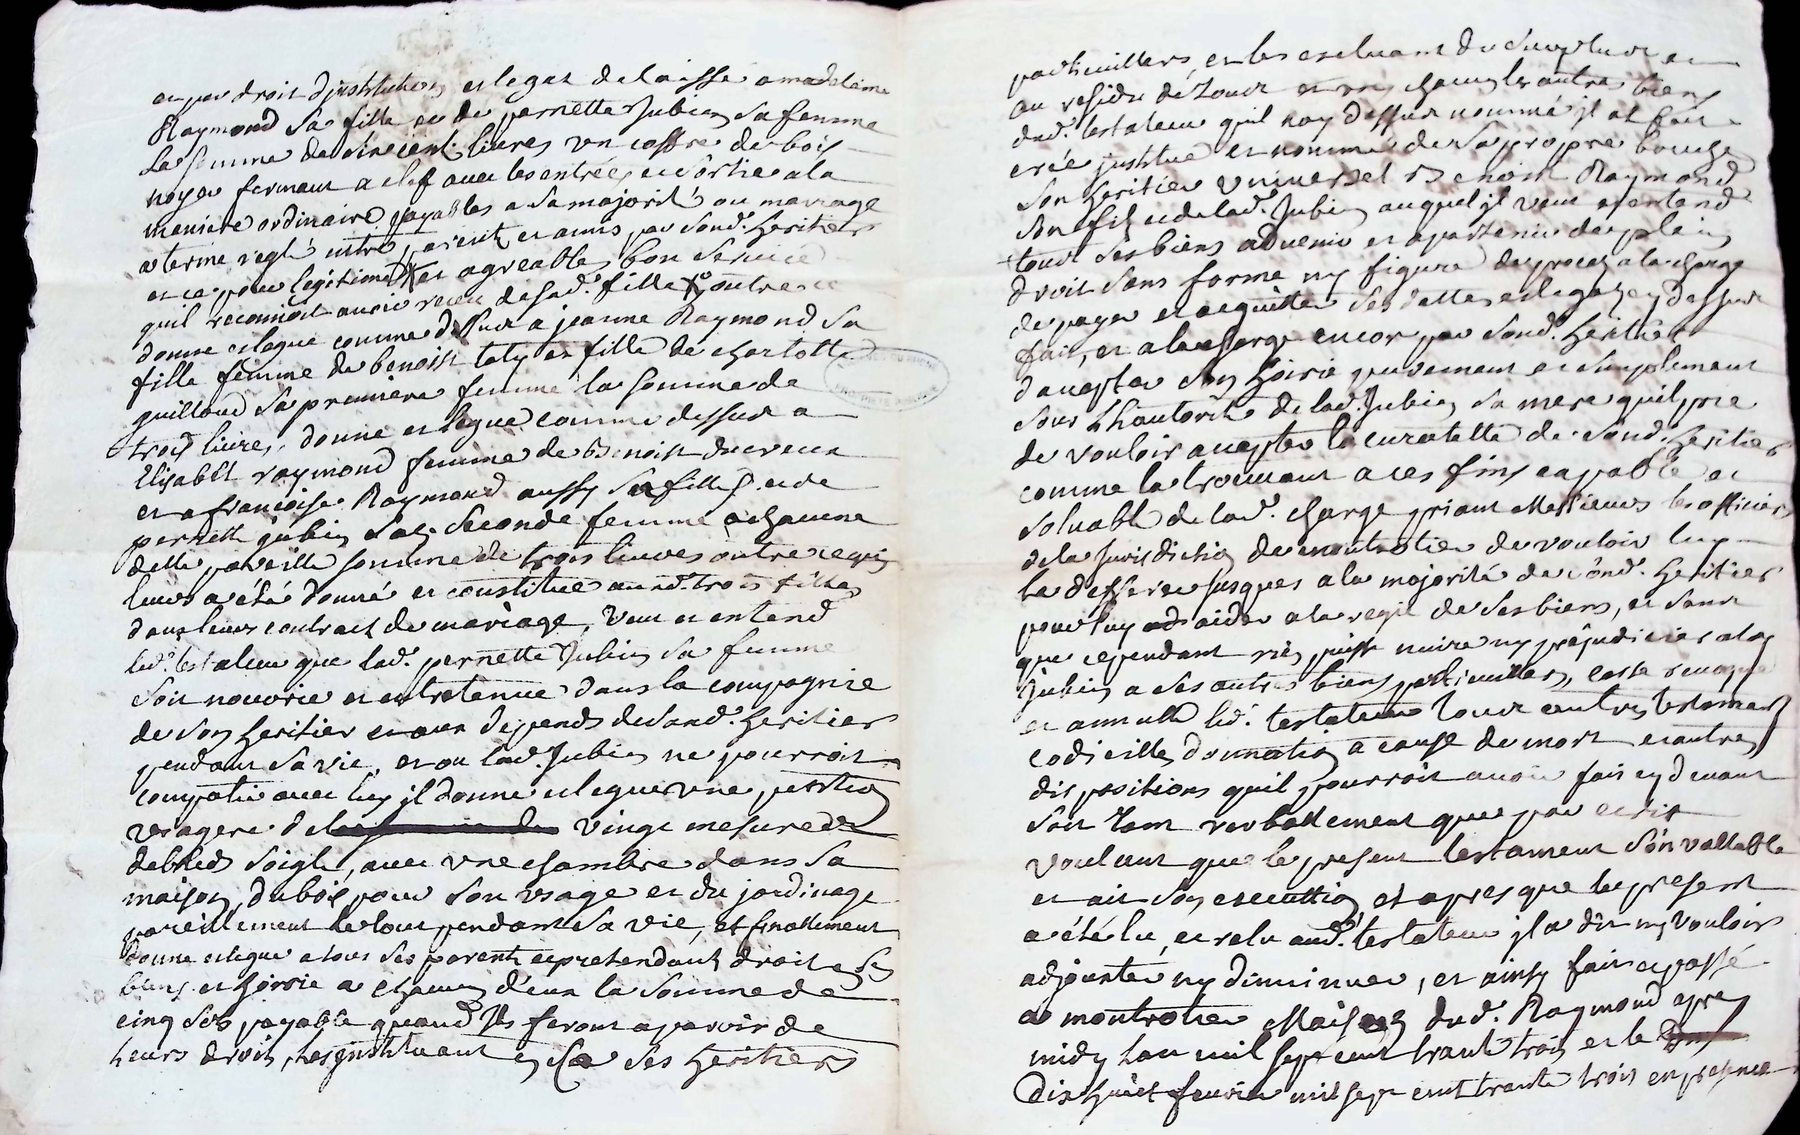 et par droit djnstitution et legat delaisse a madelaine
Raymond sa fille et de pernette Jubin sa femme
la somme de six cient livres un coffre de bois
noyer fermant a clef avec les entrées et sorties a la
maniere ordinaire payables a sa majorité ou mariage
a terme reglé entre parents et amis par sond. heritier
et ce pour legitime et agreable bon service
quil reconnoit avoir receu de sad. fille outre ce
donne et legue comme dessus a jeanne Raymond sa
fille femme de benoist et fille de charlotte
guillaud sa premiere femme la somme de
trois livres, donne et legue comme dessus a
Elisabet raymond femme de Benoist ducreux
et a francoise Raymond aussy sa fille et de
pernette jubin sad. seconde femme a chacune
delle pareille somme de trois livres outre ce qui
leurs a été donné et constitué aud. trois filles
dans leurs contract de mariage, veut et entend
led. testateur que lad. pernette Jubin sa femme
soit nourrie et entretenue dans la compagnie
de son heritier et aux depends de sond. heritier
pendant sa vie, et ou lad. Jubin ne pourroit
compatir avec luy jl donne et legue une pention
viagere de vingt mesures
debled soigle, avec une chambre dans sa
maison, du bois pour son usage et du jardinage
pareillement le tout pendant sa vie, et finallement
donne et legue a tous ses parents et pretendants droit en ses
biens et hoirie a chacun deux la somme de
cinq sols payable quand jls feront aparoir de
leurs droit, les jnstituant en ce ses heritiers
particulliers, et les excluant du surplus et
au residu de tous et uns chacuns les autres biens
dud. testateur quil nay dessus nommé jl at fait
crée jnstitue et nomme de sa propre bouche
son heritier universel Benoist Raymond
son fils et de lad. Jubin auquel jl veut et entend
tous ses biens advenir et apartenir de plein
droit sans forme ny figure de procez a la charge
de payer et acquitter ses dettes et legats cy dessus
fait, et a la charge encor par sond. heritier
daccepter son hoirie purement et simplement
sous lhautorité de lad. Jubin sa mere quil prie
de vouloir accepter la curatelle de sond. heritier
comme la trouvant a ces fins capable et
solvable de lad. charge priant Messieurs les officiers
de la Jurisdiction de montrotier de vouloir luy
la defferer jusques a la majorité de sond. heritier
pour luy aider a la regie de ses biens, et sans
que cependant rien puisse nuire ny prejudicier a lad.
Jubin a ses autres biens particulliers, casse revoque
et annulle led. testateur tous autres testament
codicille donnation a cause de mort et autres
dispositions quil pourroit avoir fait cy devant
soit tant verballement que par ecrit
voulant que le present testament soit vallable
et ait son execution et apres que le present
a été lu, et relu aud. testateur jl a dit ny vouloir
adjouter ny diminuer, et ainsy fait et passé
a montrotier Maison dud. Raymond apres
midy lan mil sept cent trante trois et le
Dix huit fevrier mil sept cent trante trois en presence